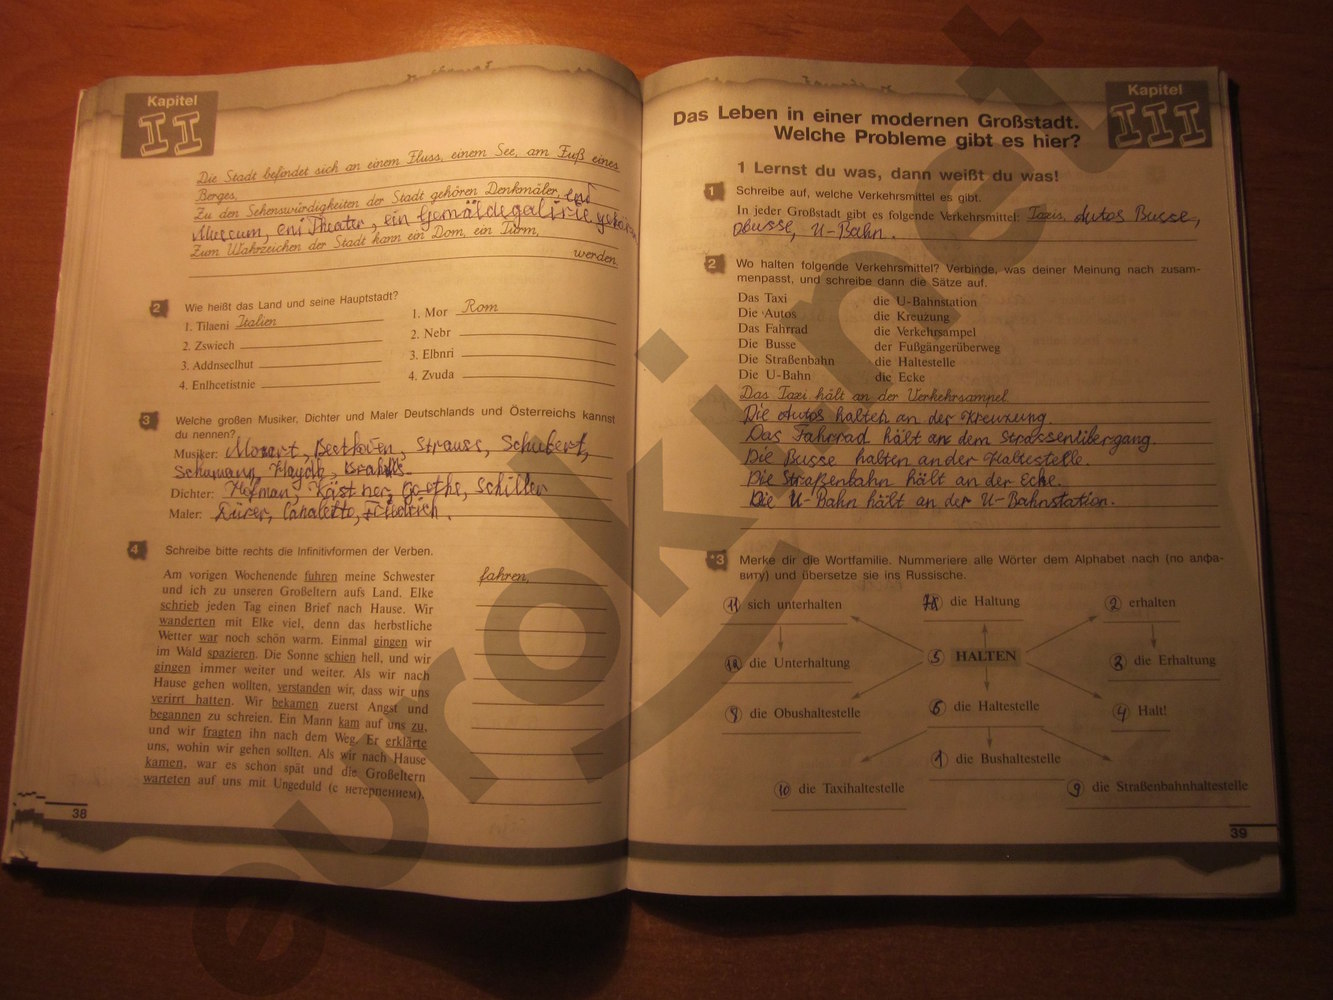 Kapitel
II
Die Stadt befindet sich an einem Fluss, einem See, am Fuß eines
Berges,
Zu den Sehenswürdigkeiten der Stadt gehören Denkmäler, ein
Museum, ein Theater, ein Gemäldegalerie gehören
Zum Wahrzeichen der Stadt kann ein Dom, ein Turm,
werden.
2 Wie heißt das Land und seine Hauptstadt?
1. Tilaeni Italien
2. Zswiech
3. Addnseclhut
4. Enlhcetistnie
1. Mor Rom
2. Nebr
3. Elbnri
4. Zvuda
3 Welche großen Musiker, Dichter und Maler Deutschlands und Österreichs kannst
du nennen?
Musiker: Mozart, Beethoven, Strauss, Schubert,
Schumann, Haydn, Brahms
Dichter: Hofman, Kästner, Goethe, Schiller
Maler: Dürer, Canaletto, Friedrich.
4 Schreibe bitte rechts die Infinitivformen der Verben.
Am vorigen Wochenende fuhren meine Schwester
und ich zu unseren Großeltern aufs Land. Elke
schrieb jeden Tag einen Brief nach Hause. Wir
wanderten mit Elke viel, denn das herbstliche
Wetter war noch schön warm. Einmal gingen wir
im Wald spazieren. Die Sonne schien hell, und wir
gingen immer weiter und weiter. Als wir nach
Hause gehen wollten, verstanden wir, dass wir uns
verirrt hatten. Wir bekamen zuerst Angst und
begannen zu schreien. Ein Mann kam auf uns zu,
und wir fragten ihn nach dem Weg. Er erklärte
uns, wohin wir gehen sollten. Als wir nach Hause
kamen, war es schon spät und die Großeltern
warteten auf uns mit Ungeduld (с нетерпением).
fahren,
38
Kapitel
III
Das Leben in einer modernen Großstadt.
Welche Probleme gibt es hier?
1 Lernst du was, dann weißt du was!
1 Schreibe auf, welche Verkehrsmittel es gibt.
In jeder Großstadt gibt es folgende Verkehrsmittel: Taxis, Autos Busse,
Obusse, U-Bahn.
2 Wo halten folgende Verkehrsmittel? Verbinde, was deiner Meinung nach zusam-
menpasst, und schreibe dann die Sätze auf.
Das Taxi die U-Bahnstation
Die Autos die Kreuzung
Das Fahrrad die Verkehrsampel
Die Busse der Fußgängerüberweg
Die Straßenbahn die Haltestelle
Die U-Bahn die Ecke
Das Taxi hält an der Verkehrsampel
Die Autos halten an der Kreuzung
Das Fahrrad hält an dem Strassenübergang.
Die Busse halten an der Haltestelle.
Die Straßenbahn hält an der Ecke.
Die U-Bahn hält an der U-Bahnstation.
*3 Merke dir die Wortfamilie. Nummeriere alle Wörter dem Alphabet nach (по алфа-
виту) und übersetze sie ins Russische.
11 sich unterhalten
die Haltung
2 erhalten
12 die Unterhaltung
5 HALTEN
3 die Erhaltung
8 die Obushaltestelle
6 die Haltestelle
4 Halt!
1 die Bushaltestelle
10 die Taxihaltestelle
9 die Straßenbahnhaltestelle
39
euroki.net